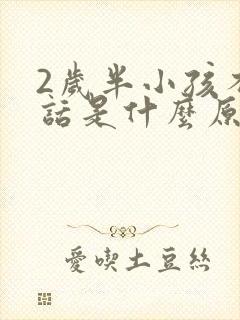 2歲半小孩
話是什麼原
愛喫土豆絲